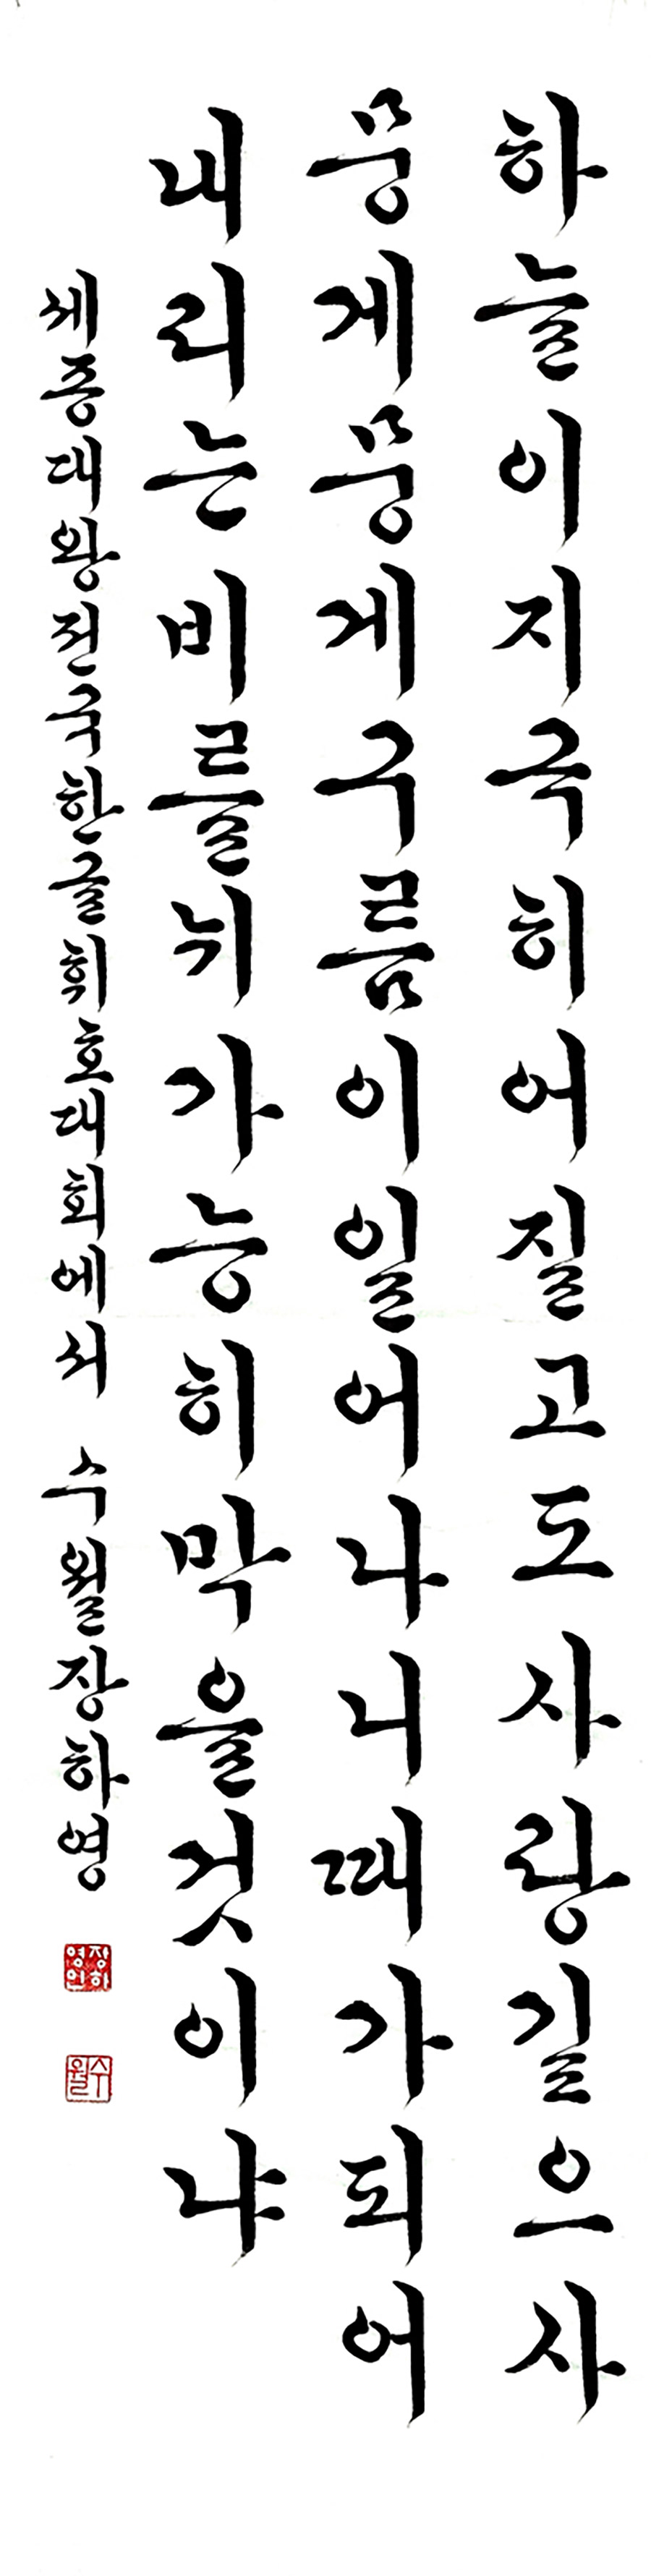 하늘이지극히어질고도사랑길으사
뭉게뭉게구름이일어나니때가되어
내리는비를뉘가능히막을것이냐
세종대왕전국한글휘호대회에서 수월장하영
장하영인
수월